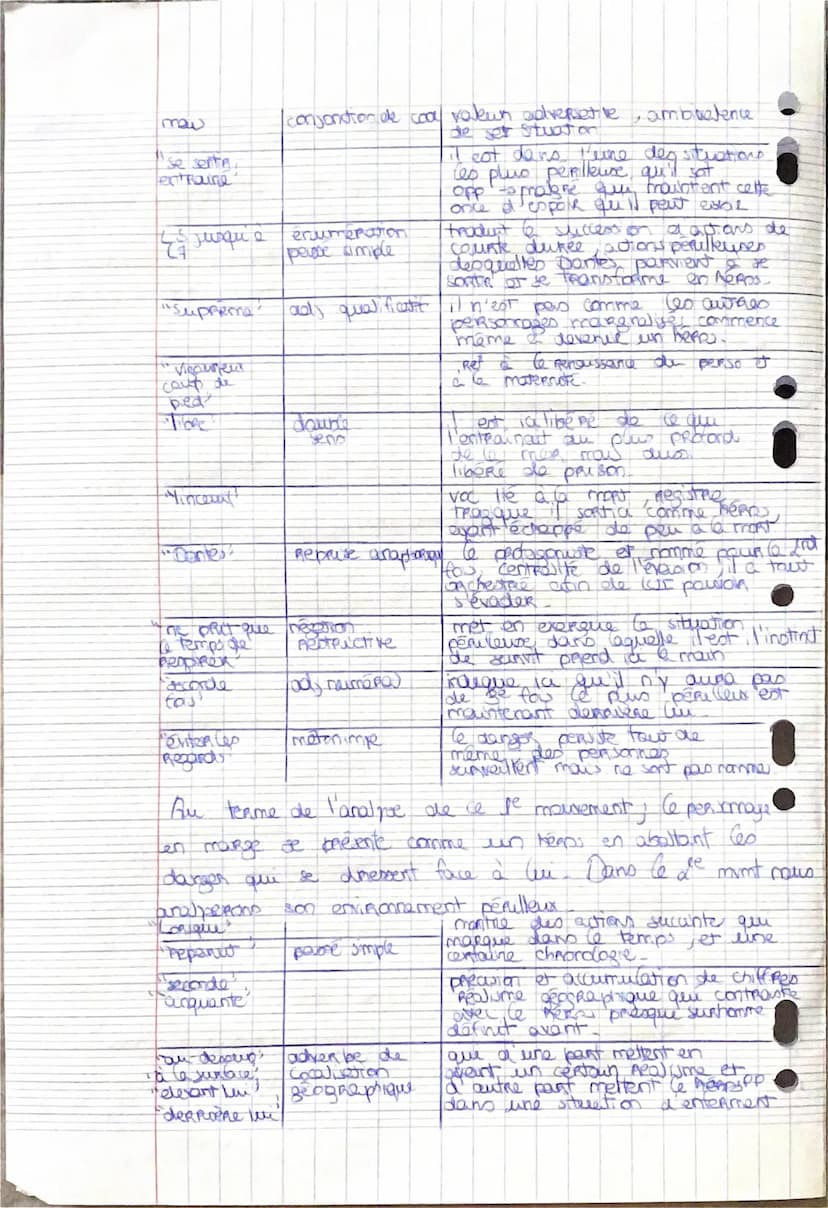 mais conjonction de coo valeur adversative, ambivalence
de set situation
"se sentit il est dans l'une des situations
entrainé" les plus périlleuse, qu'il soit
opp → malgré qui maintient cette
once d'espoir qu'il peut avoir
L5 jusqu'à énumération traduit la succession d'actions de
L7 passé simple courte durée, actions périlleuses
desquelles Dantès parvient à se
sortir et se transforme en héros.
"suprême" adj qualificatif il n'est pas comme les autres
personnages marginalisé, commence
même à devenir un héros.
"vigoureux Ref à la renaissance du perso et
coup de à la maternité.
pied"
"libre" double il est ici libéré de ce qui
sens l'entrainait au plus profond
de la mer mais aussi
libéré de prison.
"linceul" voc lié à la mort, registre
tragique il sort ici comme héros,
ayant échappé de peu à la mort
"Dantès" Reprise anaphorique le protagoniste et nommé pour la 2nd
fois, centralité de l'évasion, il a tout
orchestré afin de pouvoir
s'évader.
"ne prit que négation met en exergue la situation
le temps de restrictive périlleuse dans laquelle il est, l'instinct
respirer" de survit prend ici le main
"seconde adj numéral indique ici qu'il n'y aura pas
fois" de 3e fois le plus périlleux est
maintenant derrière lui.
"éviter les métonimie le danger persiste tout de
regards" même des personnes
surveillent mais ne sont pas nommé
Au terme de l'analyse de ce 1e mouvement, le personnage
en marge se présente comme un héros en abattant les
danger qui se dressent face à lui. Dans le 2e mvmt nous
analyserons son environnement périlleux.
"Lorsque" montre des actions succinte qui
"reparut" passé simple marque dans le temps, et une
certaine chronologie.
"seconde" précision et accumulation de chiffres
"cinquante" Réalisme géographique qui contraste
avec le héros presque surhomme
définit avant.
"au-dessus" adverbe de que d'une part mettent en
"à la surface" localisation avant un certain réalisme et
"devant lui" géographique d'autre part mettent le héros pp
"derrière lui" dans une situation d'enferment